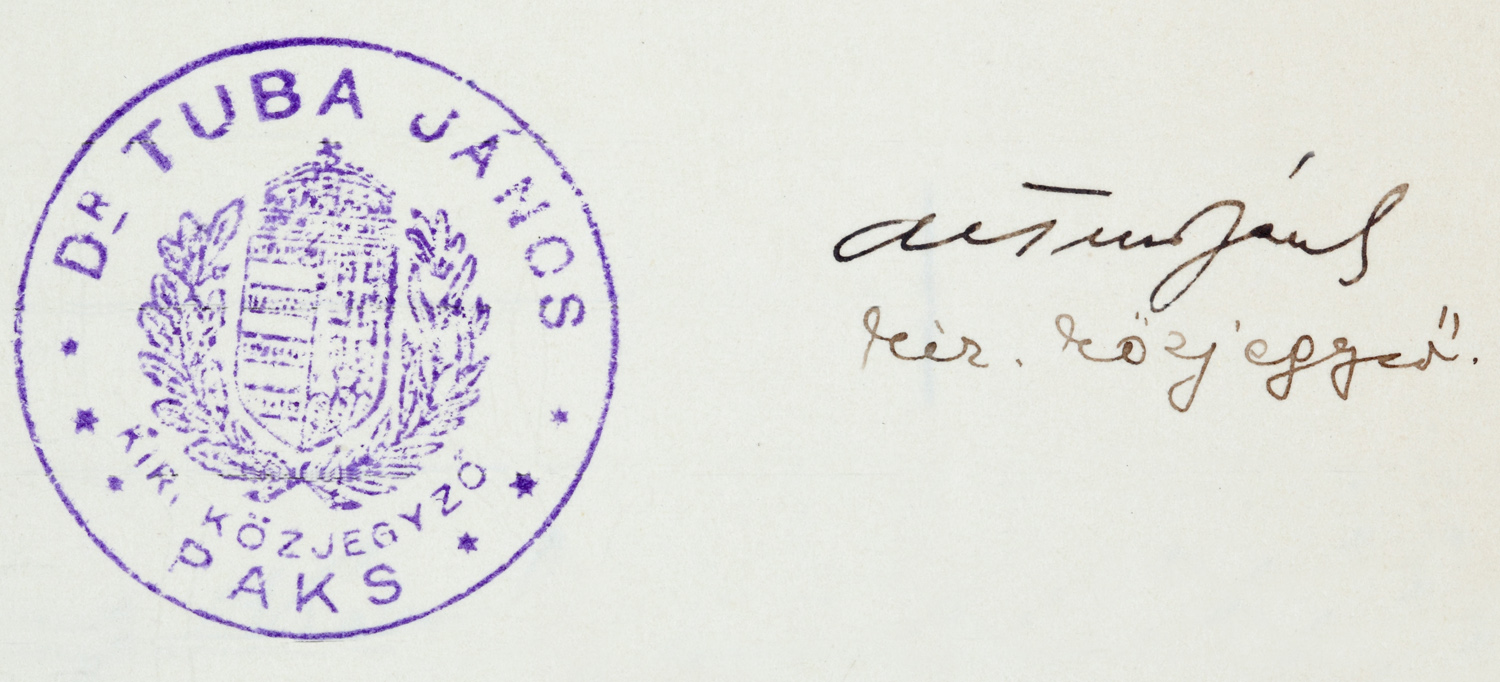 DR TUBA JÁNOS
KIR. KÖZJEGYZŐ
PAKS
dr Tuba János
kir. közjegyző.